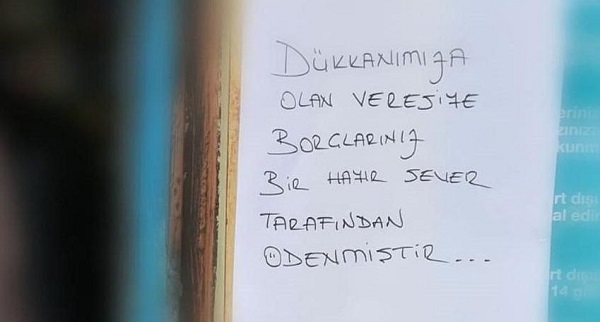 DÜKKANIMIZA
OLAN VERESİYE
BORÇLARINIZ
BİR HAYIR SEVER
TARAFINDAN
ÖDENMİŞTİR...
rt dışı
al edir
rt dışı